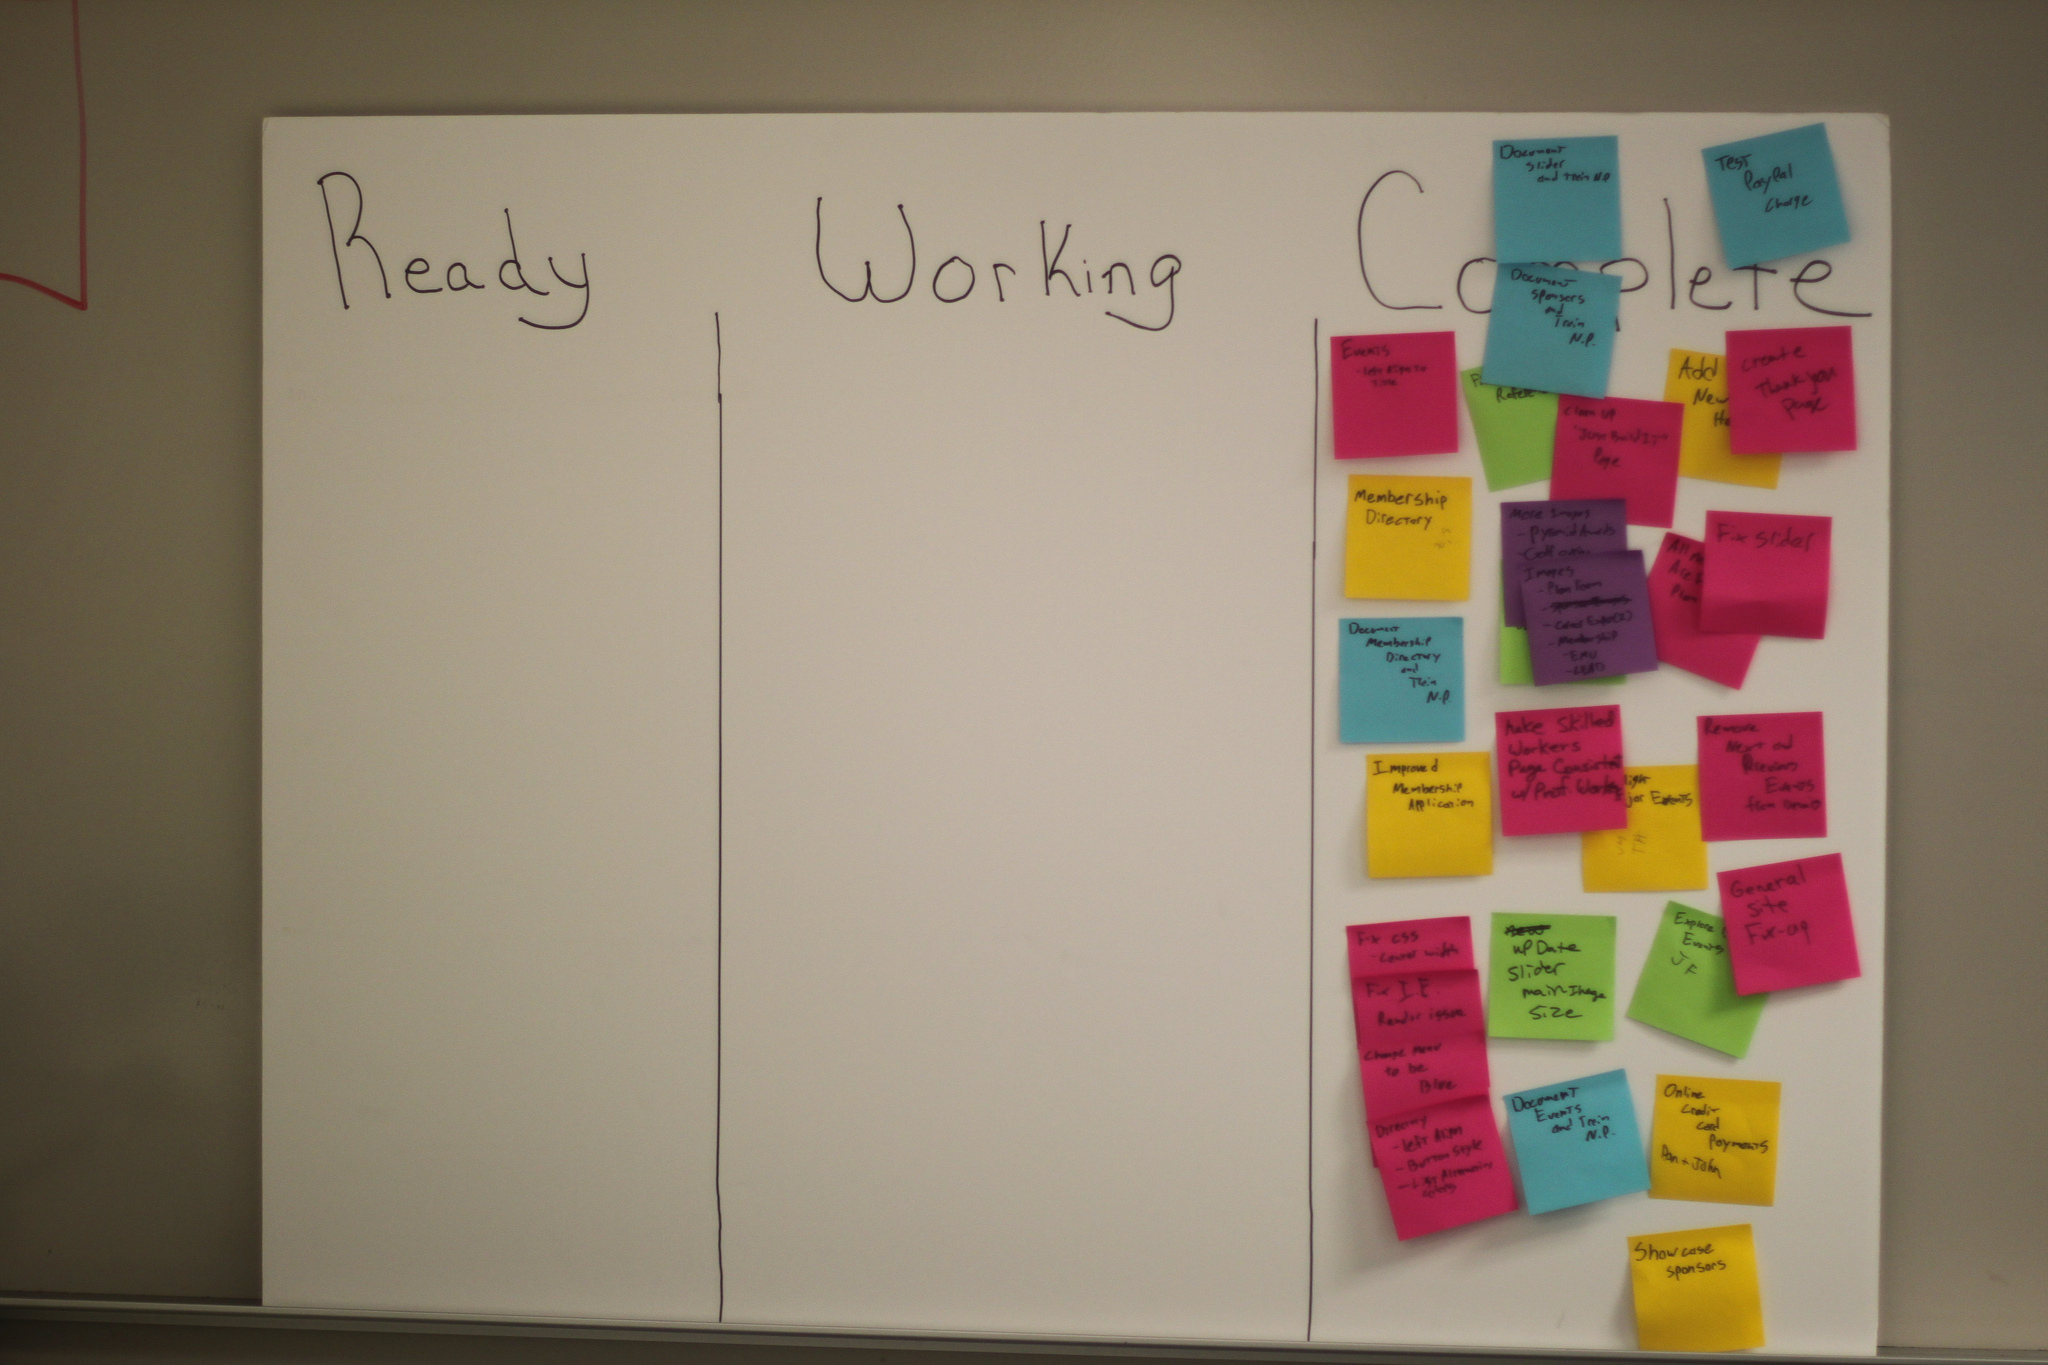 Ready
Working
Complete
Document
Slider
and Train N.P.
Test
PayPal
Charge
Document
Sponsers
and
Train
N.P.
Events
- left Align to
Title
Add
New
Create
Thank you
page
Clean up
"Just Build It"
Page
Membership
Directory
More Images
- Pyramid Awards
- Golf
Images
- Plan Room
- Career Expo(2)
- Membership
- EMU
- LEAD
Fix slider
All
Plan
Document
Membership
Directory
and
Train
N.P.
Make Skilled
Workers
Page Consistent
w/ Prof. Workers
Remove
Next and
Previous
Events
from
Improved
Membership
Application
Events
General
site
Fix-up
Fix CSS
- Center width
Fix I.E.
Render issue
Change menu
to be
Blue
Directory
- left Align
- Button Style
- List Alternating
colors
upDate
Slider
main Image
Size
Explore
Events
JF
Document
Events
and Train
N.P.
Online
Credit
Card
Payments
Showcase
sponsors